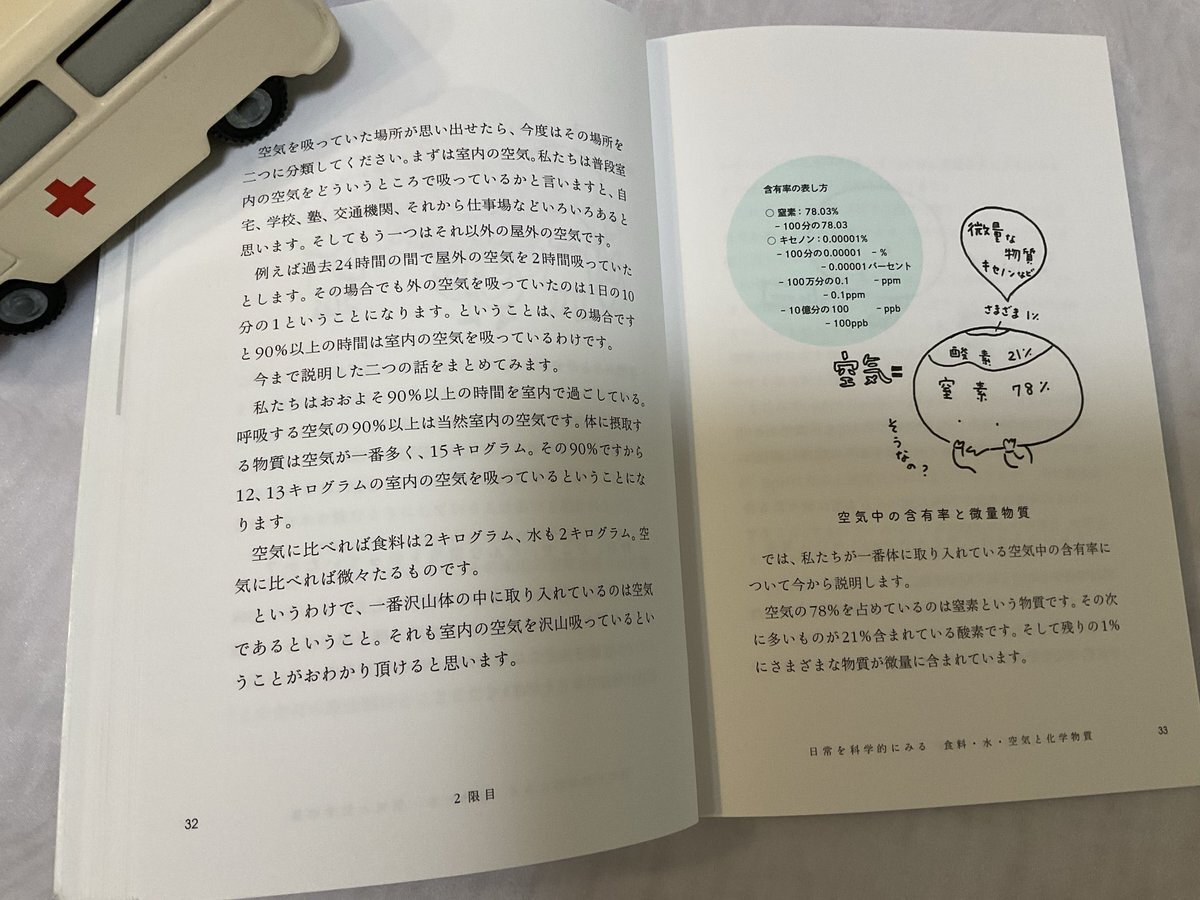 空気を吸っていた場所が思い出せたら、今度はその場所を
二つに分類してください。まずは室内の空気。私たちは普段室
内の空気をどういうところで吸っているかと言いますと、自
宅、学校、塾、交通機関、それから仕事場などいろいろあると
思います。そしてもう一つはそれ以外の屋外の空気です。
例えば過去24時間の間で屋外の空気を2時間吸っていた
とします。その場合でも外の空気を吸っていたのは1日の10
分の1ということになります。ということは、その場合です
と90%以上の時間は室内の空気を吸っているわけです。
今まで説明した二つの話をまとめてみます。
私たちはおおよそ90%以上の時間を室内で過ごしている。
呼吸する空気の90%以上は当然室内の空気です。体に摂取す
る物質は空気が一番多く、15キログラム。その90%ですから
12、13キログラムの室内の空気を吸っているということにな
ります。
空気に比べれば食料は2キログラム、水も2キログラム。空
気に比べれば微々たるものです。
というわけで、一番沢山体の中に取り入れているのは空気
であるということ。それも室内の空気を沢山吸っているとい
うことがおわかり頂けると思います。
2限目
32
含有率の表し方
○ 窒素：78.03%
– 100分の78.03
○ キセノン：0.00001%
– 100分の0.00001 – %
– 0.00001パーセント
– 100万分の0.1 – ppm
– 0.1ppm
– 10億分の100 – ppb
– 100ppb
微量な
物質
キセノンなど
さまざま 1%
酸素 21%
空気=
窒素 78%
そうなの?
空気中の含有率と微量物質
では、私たちが一番体に取り入れている空気中の含有率に
ついて今から説明します。
空気の78%を占めているのは窒素という物質です。その次
に多いものが21%含まれている酸素です。そして残りの1%
にさまざまな物質が微量に含まれています。
日常を科学的にみる 食料・水・空気と化学物質
33